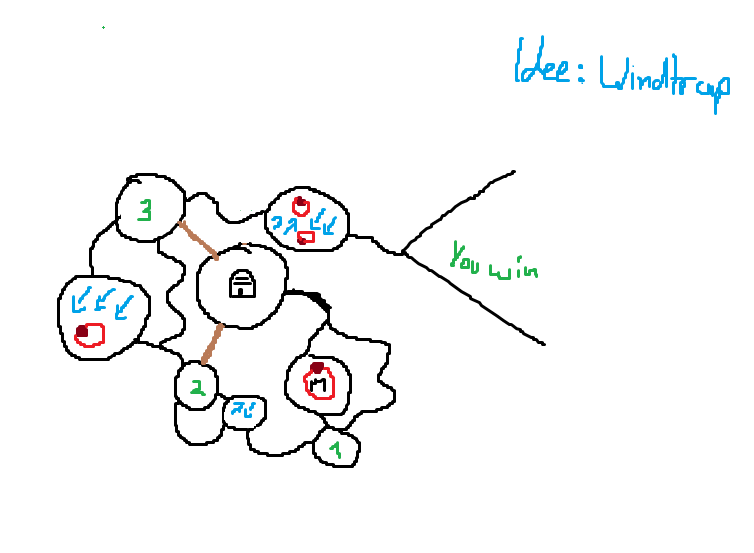 Idee: Windtrap
3
You win
2
M
1